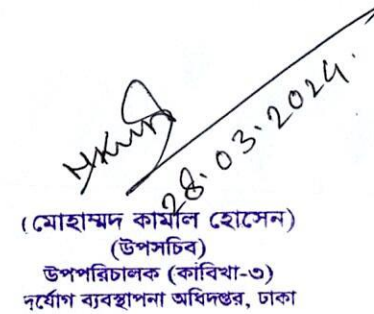 28.03.2024.
(মোহাম্মদ কামাল হোসেন)
(উপসচিব)
উপপরিচালক (কাবিখা-৩)
দুর্যোগ ব্যবস্থাপনা অধিদপ্তর, ঢাকা